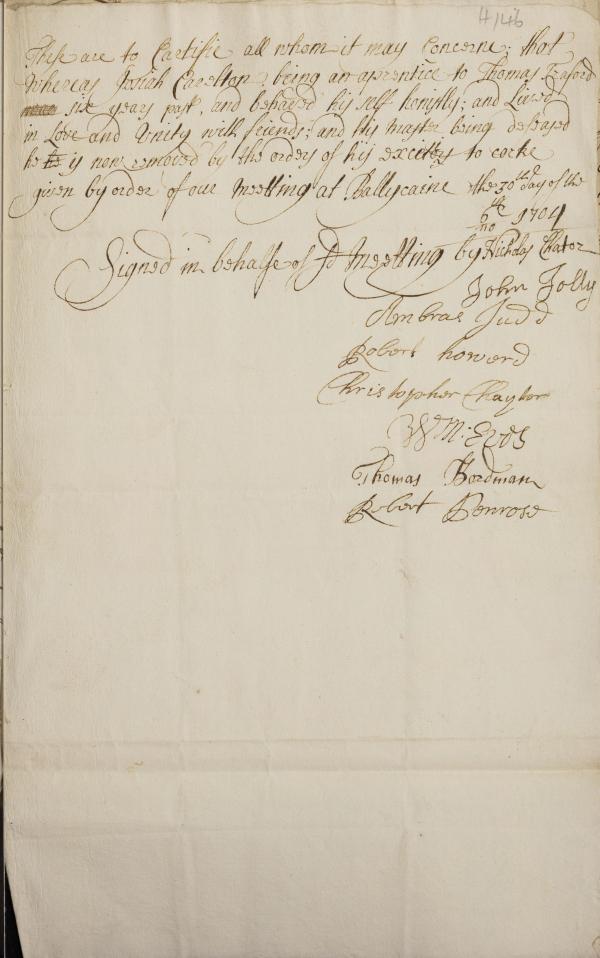 4/146
These are to Certifie all whom it may Concerne: that
Whereas Josiah Carelton being an aprentice to Thomas
six years past, and behaved his self honestly: and Lived
in Love and Unity with friends: and his Master being deseased
he is now removed by the orders of his to corke
given by order of our Meetting at Ballycaine the 30th day of the
6th mo 1704
Signed in behalfe of sd Meetting by Nichols Chator
John Jolly
Ambras Judd
Robert howerd
Christopher Chaytor
Wm:
Thomas Hordman
Robert Penrose